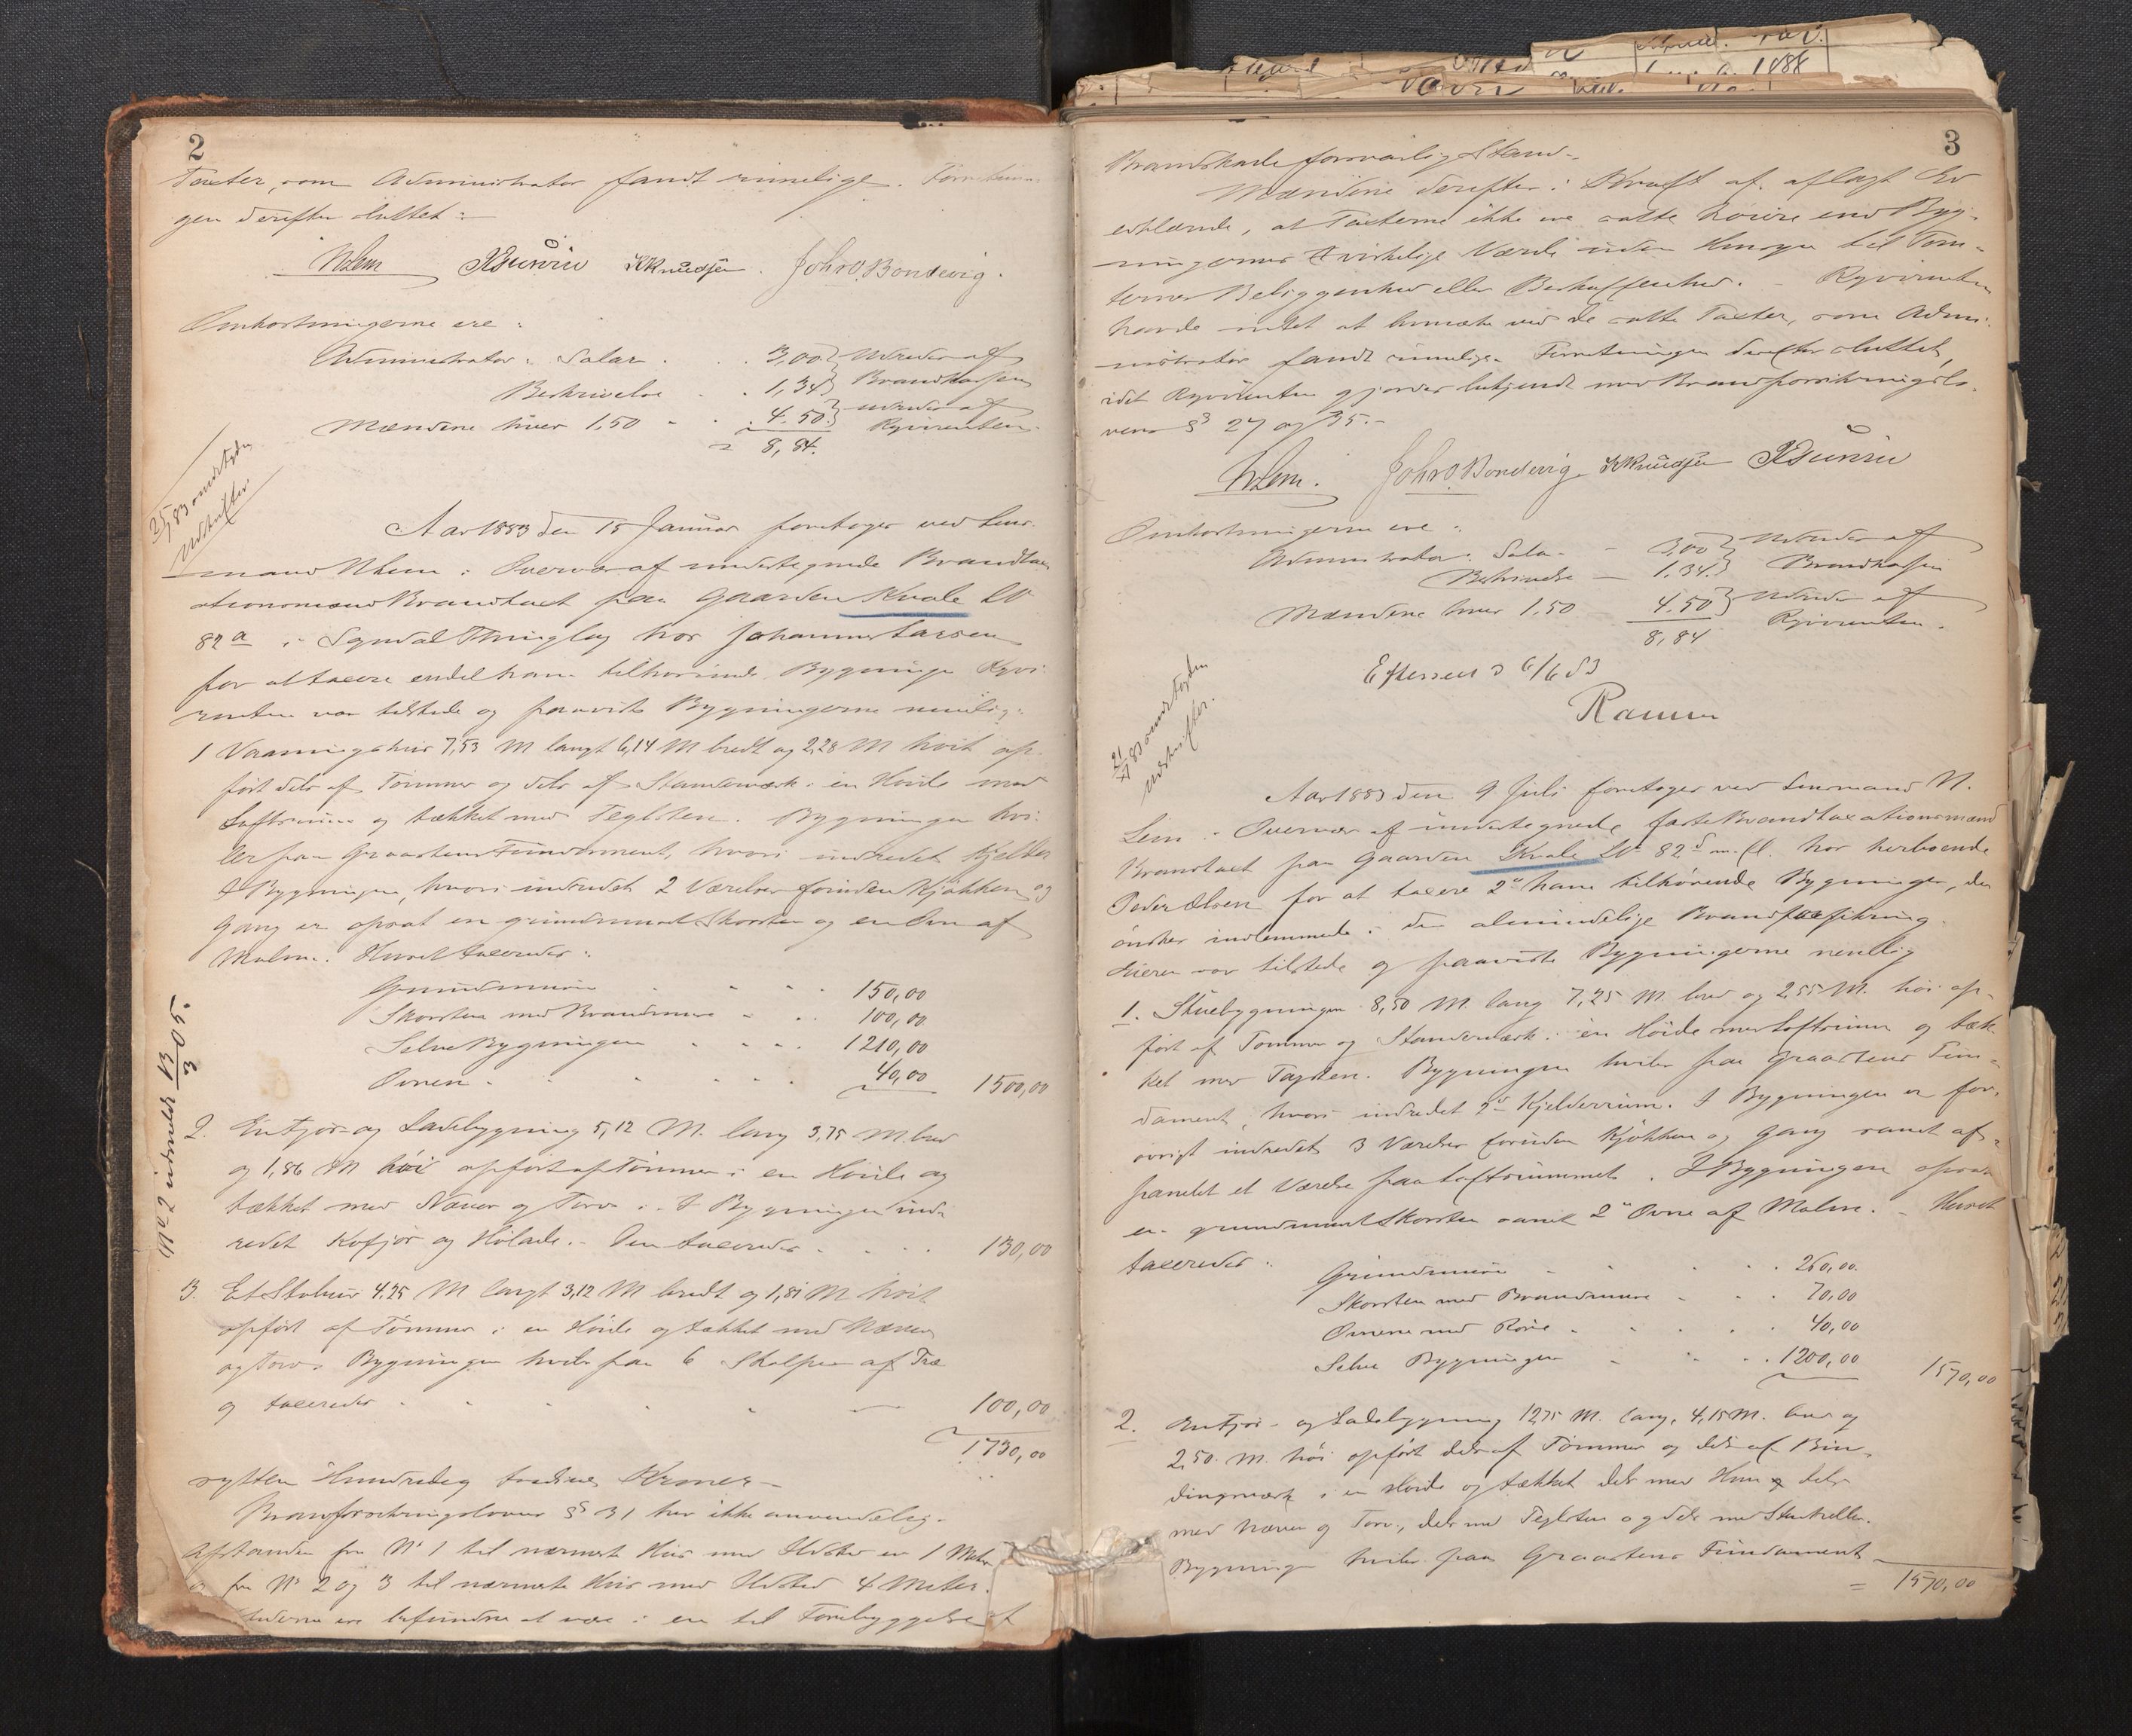 2
Taxter, som Administrator fandt rimelige. Forretnin-
gen derefter sluttet:
NLem KKnudsen. Joh. O. Bondevig.
Omkostningerne ere:
Administrator: Salær . . 3,00 Udredes af
Beskrivelse . . 1,34 Brandkassen
Mændene hver 1,50 - . 4,50 udredes af Rqvirenten.
= 8,84.
83 omdeltagden
Udskrifter
Aar 1883 den 15 Januar foretoges ved Lens-
mand NLem i Overvær af undertegnede Brandtax-
ationsmænd Brandtaxt paa Gaarden Kvale LN
82a i Sogndal Thinglag hos Johannes Larsen
for at taxere endel ham tilhørende Bygninger. Rqvi-
renten var tilstede og paaviste Bygningerne nemlig:
1 Vaaningshus 7,53 M langt 6,14 M bredt og 2,28 M høit op-
ført dels af Tømmer og dels af Standerværk i en Høide med
Loftsrum og tækket med Teglsten. Bygningen hvi-
ler paa Graastens Fundament, hvori indredet Kjelder
I Bygningen, hvori indredet 2 Værelser foruden Kjøkken og
Gang er opsat en grundmuret Skorsten og en Ovn af
Malm. Huset taxeredes:
Grundmuren . - . . 150,00
Skorsten med Brandmure - . . 100,00
Selve Bygningen . . . . 1210,00
Ovnen . . . . . 40,00 1500,00
No 2 udmeldt 13/3 05.
2. En Fjøs- og Ladebygning 5,12 M. lang 3,75 M. bred
og 1,86 M høi opført af Tømmer i en Høide og
tækket med Næver og Torv. I Bygningen ind-
redet Kofjøs og Hølade. Den taxeredes . . . 130,00
3. Et Stabur 4,25 M langt 3,12 M bredt og 1,81 M høit
opført af Tømmer i en Høide og tækket med Næver
og Torv. Bygningen hviler paa 6 Stolper af Træ
og taxeredes . . . . . 100,00
1730,00
sytten Hundrede og tredive Kroner -
Brandforsikringslovens § 31 har ikke anvendelse.
Afstanden fra No 1 til nærmeste Hus med Ildsted er 1 Meter
og fra No 2 og 3 til nærmeste Hus med Ildsted 4 Meter.
ere befundne at være i en til Forebyggelse af
3
Brandskade forsvarlig Stand.
Mændene derefter i Kraft af aflagt Ed
erklærede, at Taxterne ikke ere satte høiere end Byg-
ningernes virkelige Værdi uden Hensyn til Tom-
ternes Beliggenhed eller Beskaffenhed. - Rqvirenten
havde intet at bemærke ved de satte Taxter, som Admi-
nistrator fandt rimelige. Forretningen derefter sluttet,
idet Rqvirenten gjordes bekjendt med Brandforsikringslo-
vens §§ 27 og 35. -
NLem. Joh. O. Bondevig KKnudsen
Omkostningerne ere:
Administrator: Salær - 3,00 Udredes af
Beskrivelse - 1,34 Brandkassen
Mændene hver 1,50 4,50 Udredes af
8,84 Rqvirenten.
Efterseet d 6/6 83
Aar 1883 den 9 Juli foretoges ved Lensmand N.
Lem i Overvær af undertegnede faste Brandtaxationsmænd
Brandtaxt paa Gaarden Kvale LN 82d m. fl. hos herboende
Peder Olsen for at taxere 2de ham tilhørende Bygninger, der
ønskes indlemmede i den almindelige Brandforsikring
Eieren var tilstede og paaviste Bygningerne nemlig
1. Stuebygningen 8,50 M. lang 7,25 M. bred og 2,55 M. høi op-
ført af Tømmer og Standerværk i en Høide med Loftsrum og tæk-
ket med Tagsten. Bygningen hviler paa Graastens Fun-
dament, hvori indredet 2de Kjelderrum. I Bygningen er for-
øvrigt indredet 3 Værelser foruden Kjøkken og Gang samt af-
panelet et Værelse paa Loftsrummet. I Bygningen opsat
en grundmuret Skorsten samt 2de Ovne af Malm. - Huset
taxeredes:
Grundmuren - . . . . 260,00
Skorsten med Brandmure - . . 70,00
Ovnene med Rør . . . . 40,00
Selve Bygningen . . . 1200,00 1570,00
2. En Fjøs- og Ladebygning 12,75 M. lang, 4,15 M. bred og
2,50 M. høi opført dels af Tømmer og dels af Bin-
dingsværk i en Høide og tækket dels med Hun dels
med Næver og Torv, dels med Teglsten og dels med Stenheller.
Bygningen hviler paa Graastens Fundament -
= 1570,00